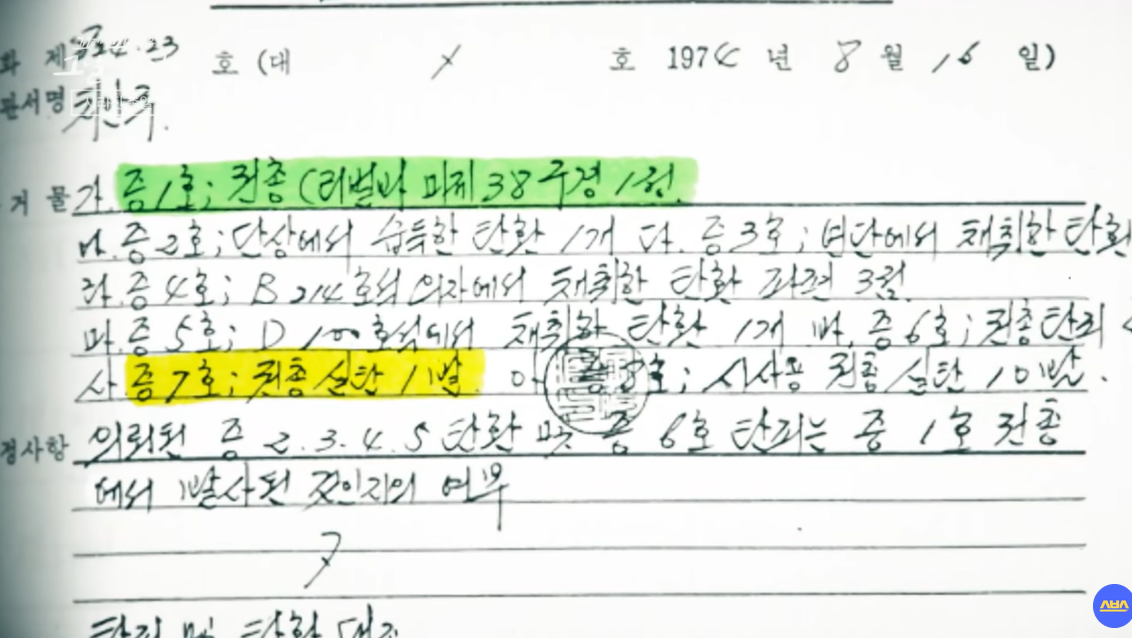 화 제 호 (대 호 1974 년 8 월 16 일)
서명
거 물 가. 증1호; 권총 (리벌바 미제 38 구경 1정.
나. 증 2호; 단상에서 습득한 탄환 1개 다. 증 3호; 연단에서 채취한 탄환
라. 증 4호; B 214 호석 의자에서 채취한 탄환 파편 3점.
마. 증 5호; D 100 호석에서 채취한 탄환 1개 바. 증 6호; 권총탄피
사 증 7호; 권총 실탄 1발. 아. 증 8호; 시사용 권총 실탄 10발.
정사항 의뢰된 증 2. 3. 4. 5 탄환 및 증 6호 탄피는 증 1호 권총
에서 발사된 것인지의 여부
탄피 및 탄환 대조